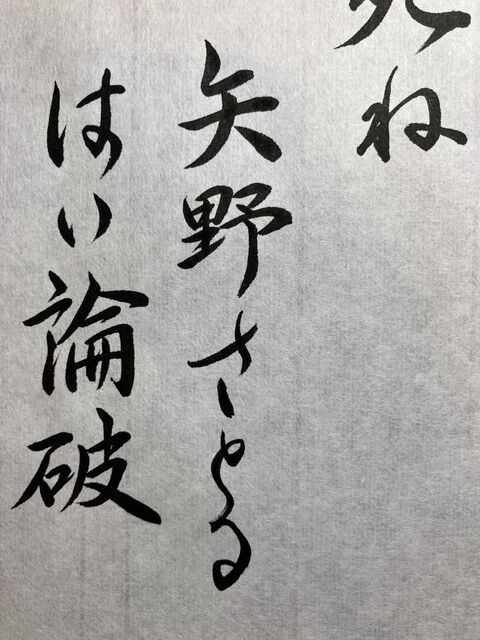 死ね
矢野さとる
はい論破